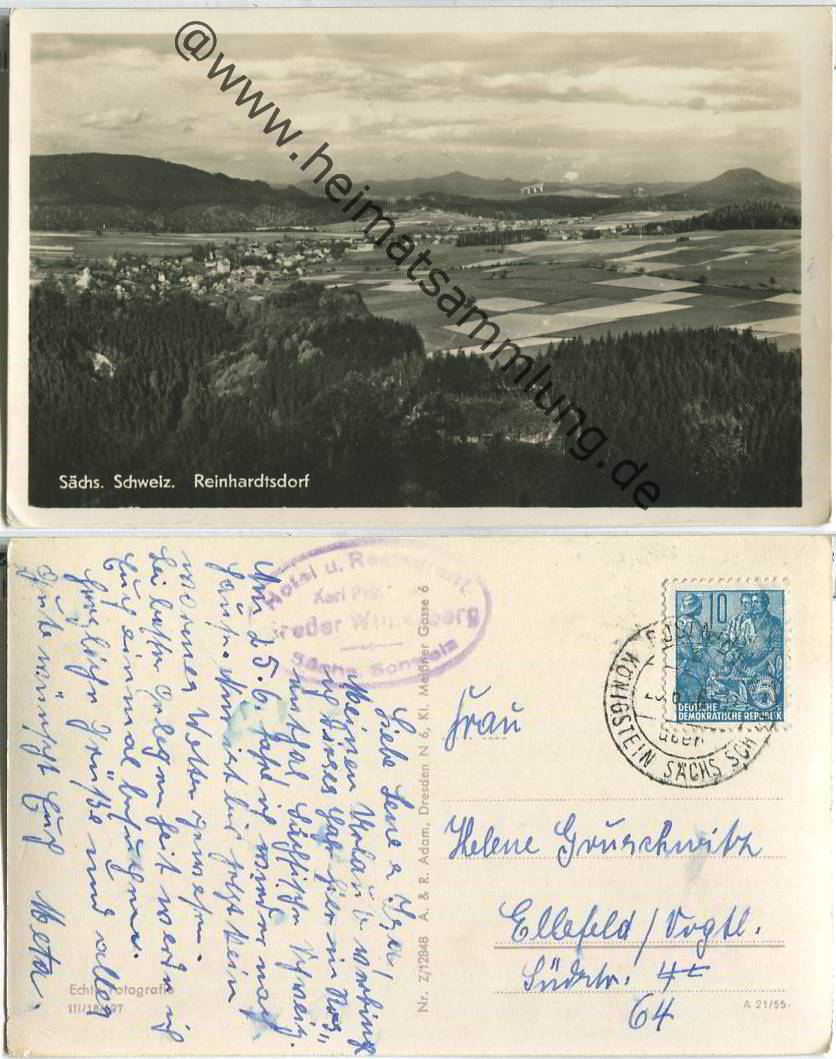 @www.heimatsammlung.de
Sächs. Schweiz. Reinhardtsdorf
Hotel u. Restaurant
Karl
Großer Winterberg
Sächs. Schweiz
Liebe Lene u.
Meinen Urlaub verbring
ich dieses Jahr hier in
Sächsische Schweiz.
Am 25.6. fahre ich wieder nach
Hause. Es ist bis jetzt kein
warmes Wetter gewesen.
Bei bester Gelegenheit werde ich
Euch einmal besuchen.
Herzliche Grüße und alles
Gute wünscht Euch Meta.
Echte Fotografie
III/18/197
Nr. Z/12848 A. & R. Adam, Dresden N 6, Kl. Meißner Gasse 6
10
DEUTSCHE
DEMOKRATISCHE REPUBLIK
über
KÖNIGSTEIN SÄCHS SCHW
Frau
Helene Gruschwitz
Ellefeld / Vogtl.
Südstr.
64
A 21/55